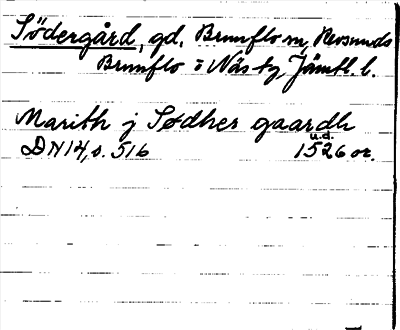 Södergård, gd. Brunflo sn, Revsunds
Brunflo o Näs tg, Jämtl. l.
Marith j Sødher gaardh
DN 14, s. 516 1526 or.
u.d.